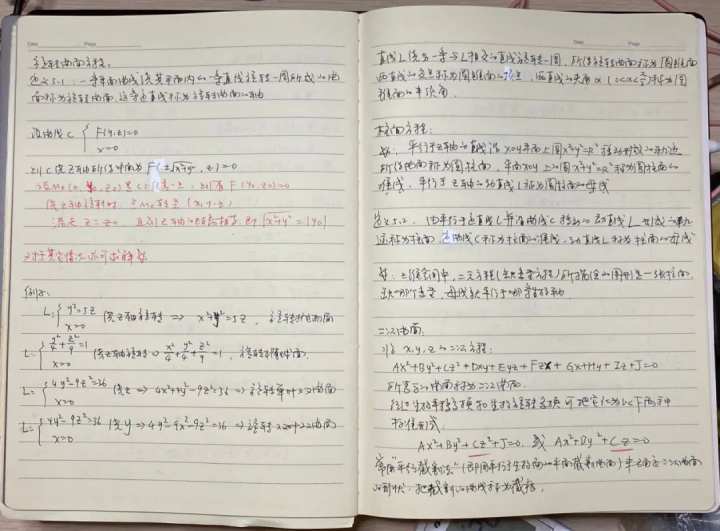 旋转曲面方程:
定义5.1:一条平面曲线绕其平面内的一条直线旋转一周所成的曲
面称为旋转曲面,这条定直线称为旋转曲面的轴
设曲线C { F(y,z)=0
x=0
则C绕Z轴旋转所得曲面为 F(±√x²+y², z)=0
设M₀(0, y₀, z₀)是C上任意一点,则有F(y₀,z₀)=0
绕Z轴旋转时,点M₀转至(x,y,z)
满足 z=z₀ 且到Z轴的距离相等 即 √x²+y²=|y₀|
对于其它情况亦可求解
例子:
L:{ y²=5z
x=0
绕Z轴旋转 ⇒ x²+y²=5z,旋转抛物面
L={ y²/4+z²/9=1
x=0
绕Z轴旋转 ⇒ x²/4+y²/4+z²/9=1,旋转椭球面
L={ 4y²-9z²=36
x=0
绕z ⇒ 4x²+4y²-9z²=36 ⇒ 旋转单叶双曲面
L={ 4y²-9z²=36
x=0
绕y ⇒ 4y²-9x²-9z²=36 ⇒ 旋转双叶双曲面
直线L绕另一条与L相交的直线旋转一周,所得旋转曲面称为圆锥面
两直线的交点称为圆锥面的顶点,两直线的夹角α(0<α<π/2)称为圆
锥面的半顶角.
柱面方程:
平行于Z轴的直线沿xoy平面上圆x²+y²=R²移动形成的轨迹
所得曲面称为圆柱面,平面xoy上的圆x²+y²=R²称为圆柱面的
准线,平行于Z轴的动直线L称为圆柱面的母线
定义5.2,由平行于定直线C并沿曲线C移动的动直线L形成的轨
迹称为柱面 定曲线C称为柱面的准线,动直线L称为柱面的母线
在空间中,二元方程(缺变量方程)所确定的图形是一张柱面.
缺哪个变量,母线就平行于哪条坐标轴
二次曲面.
将x,y,z的二次方程:
Ax²+By²+Cz²+Dxy+Eyz+Fzx+Gx+Hy+Iz+J=0
所表示的曲面称为二次曲面.
经过坐标平移变换和坐标旋转变换可把它化为以下两种
标准形式
Ax²+By²+Cz²+J=0. 或 Ax²+By²+Cz=0
常用“平行截割法”(即用平行于坐标面的平面截割曲面)来
的形状.把截割的曲线称为截痕.